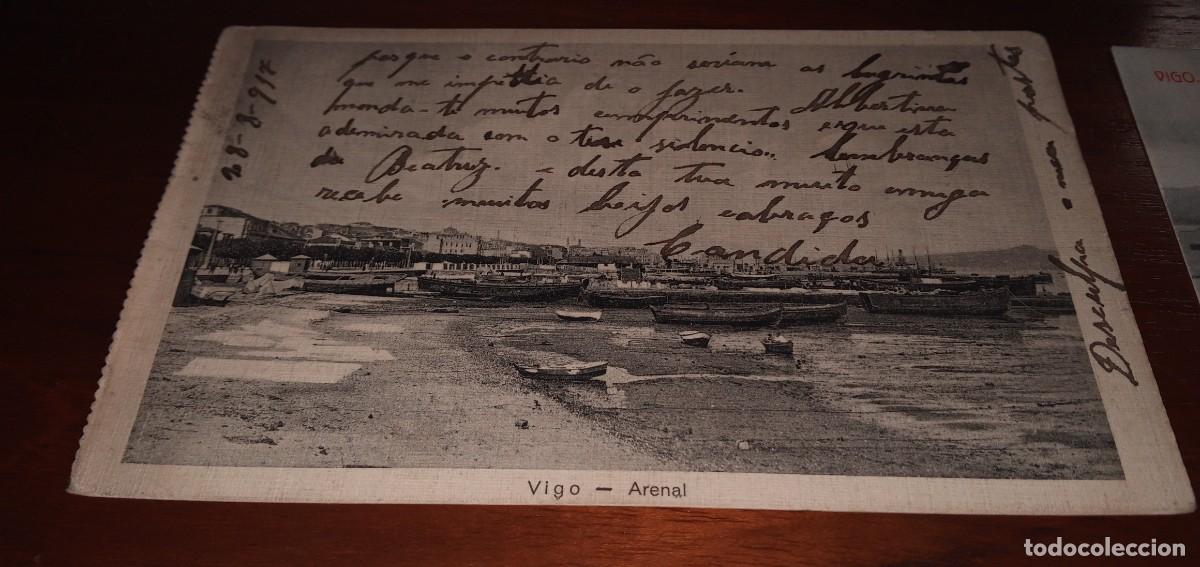 28-8-917
porque o contrario não seriam as lagrimas
que me impedia de o fazer.
manda-ti muitos comprimentos Albertina
ademirada com o teu sidencio.. lembranças
da Beatriz. e desta tua muito amiga
recebe muitos beijos eabraços
Candida
Desculpa o meu
Vigo — Arenal
VIGO.
todocoleccion